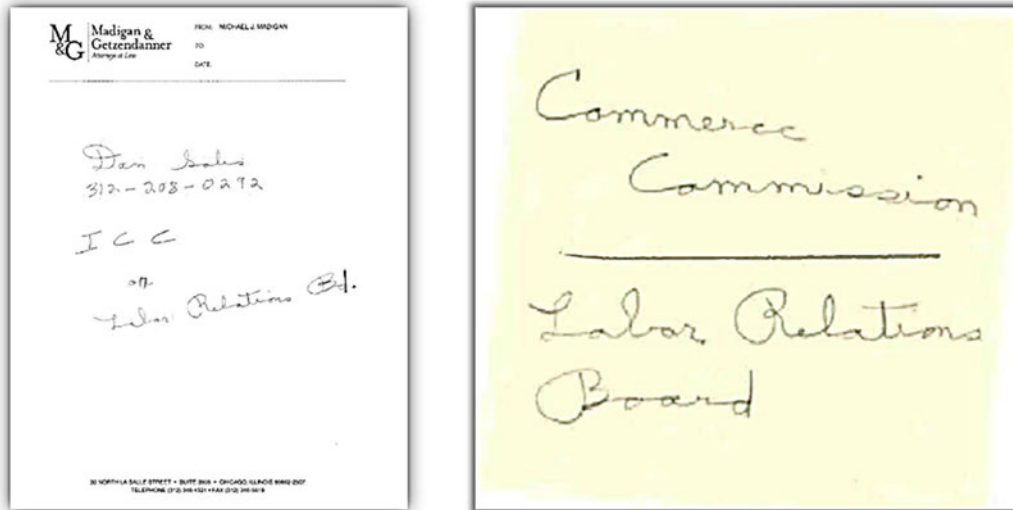 M&G
Madigan &
Getzendanner
Attorneys at Law
FROM: MICHAEL J. MADIGAN
TO:
DATE:
Dan Soles
312-208-0292
I C C
or
Labor Relations Bd.
30 NORTH LA SALLE STREET • SUITE • CHICAGO, ILLINOIS
TELEPHONE (312) • FAX (312)
Commerce
Commission
Labor Relations
Board